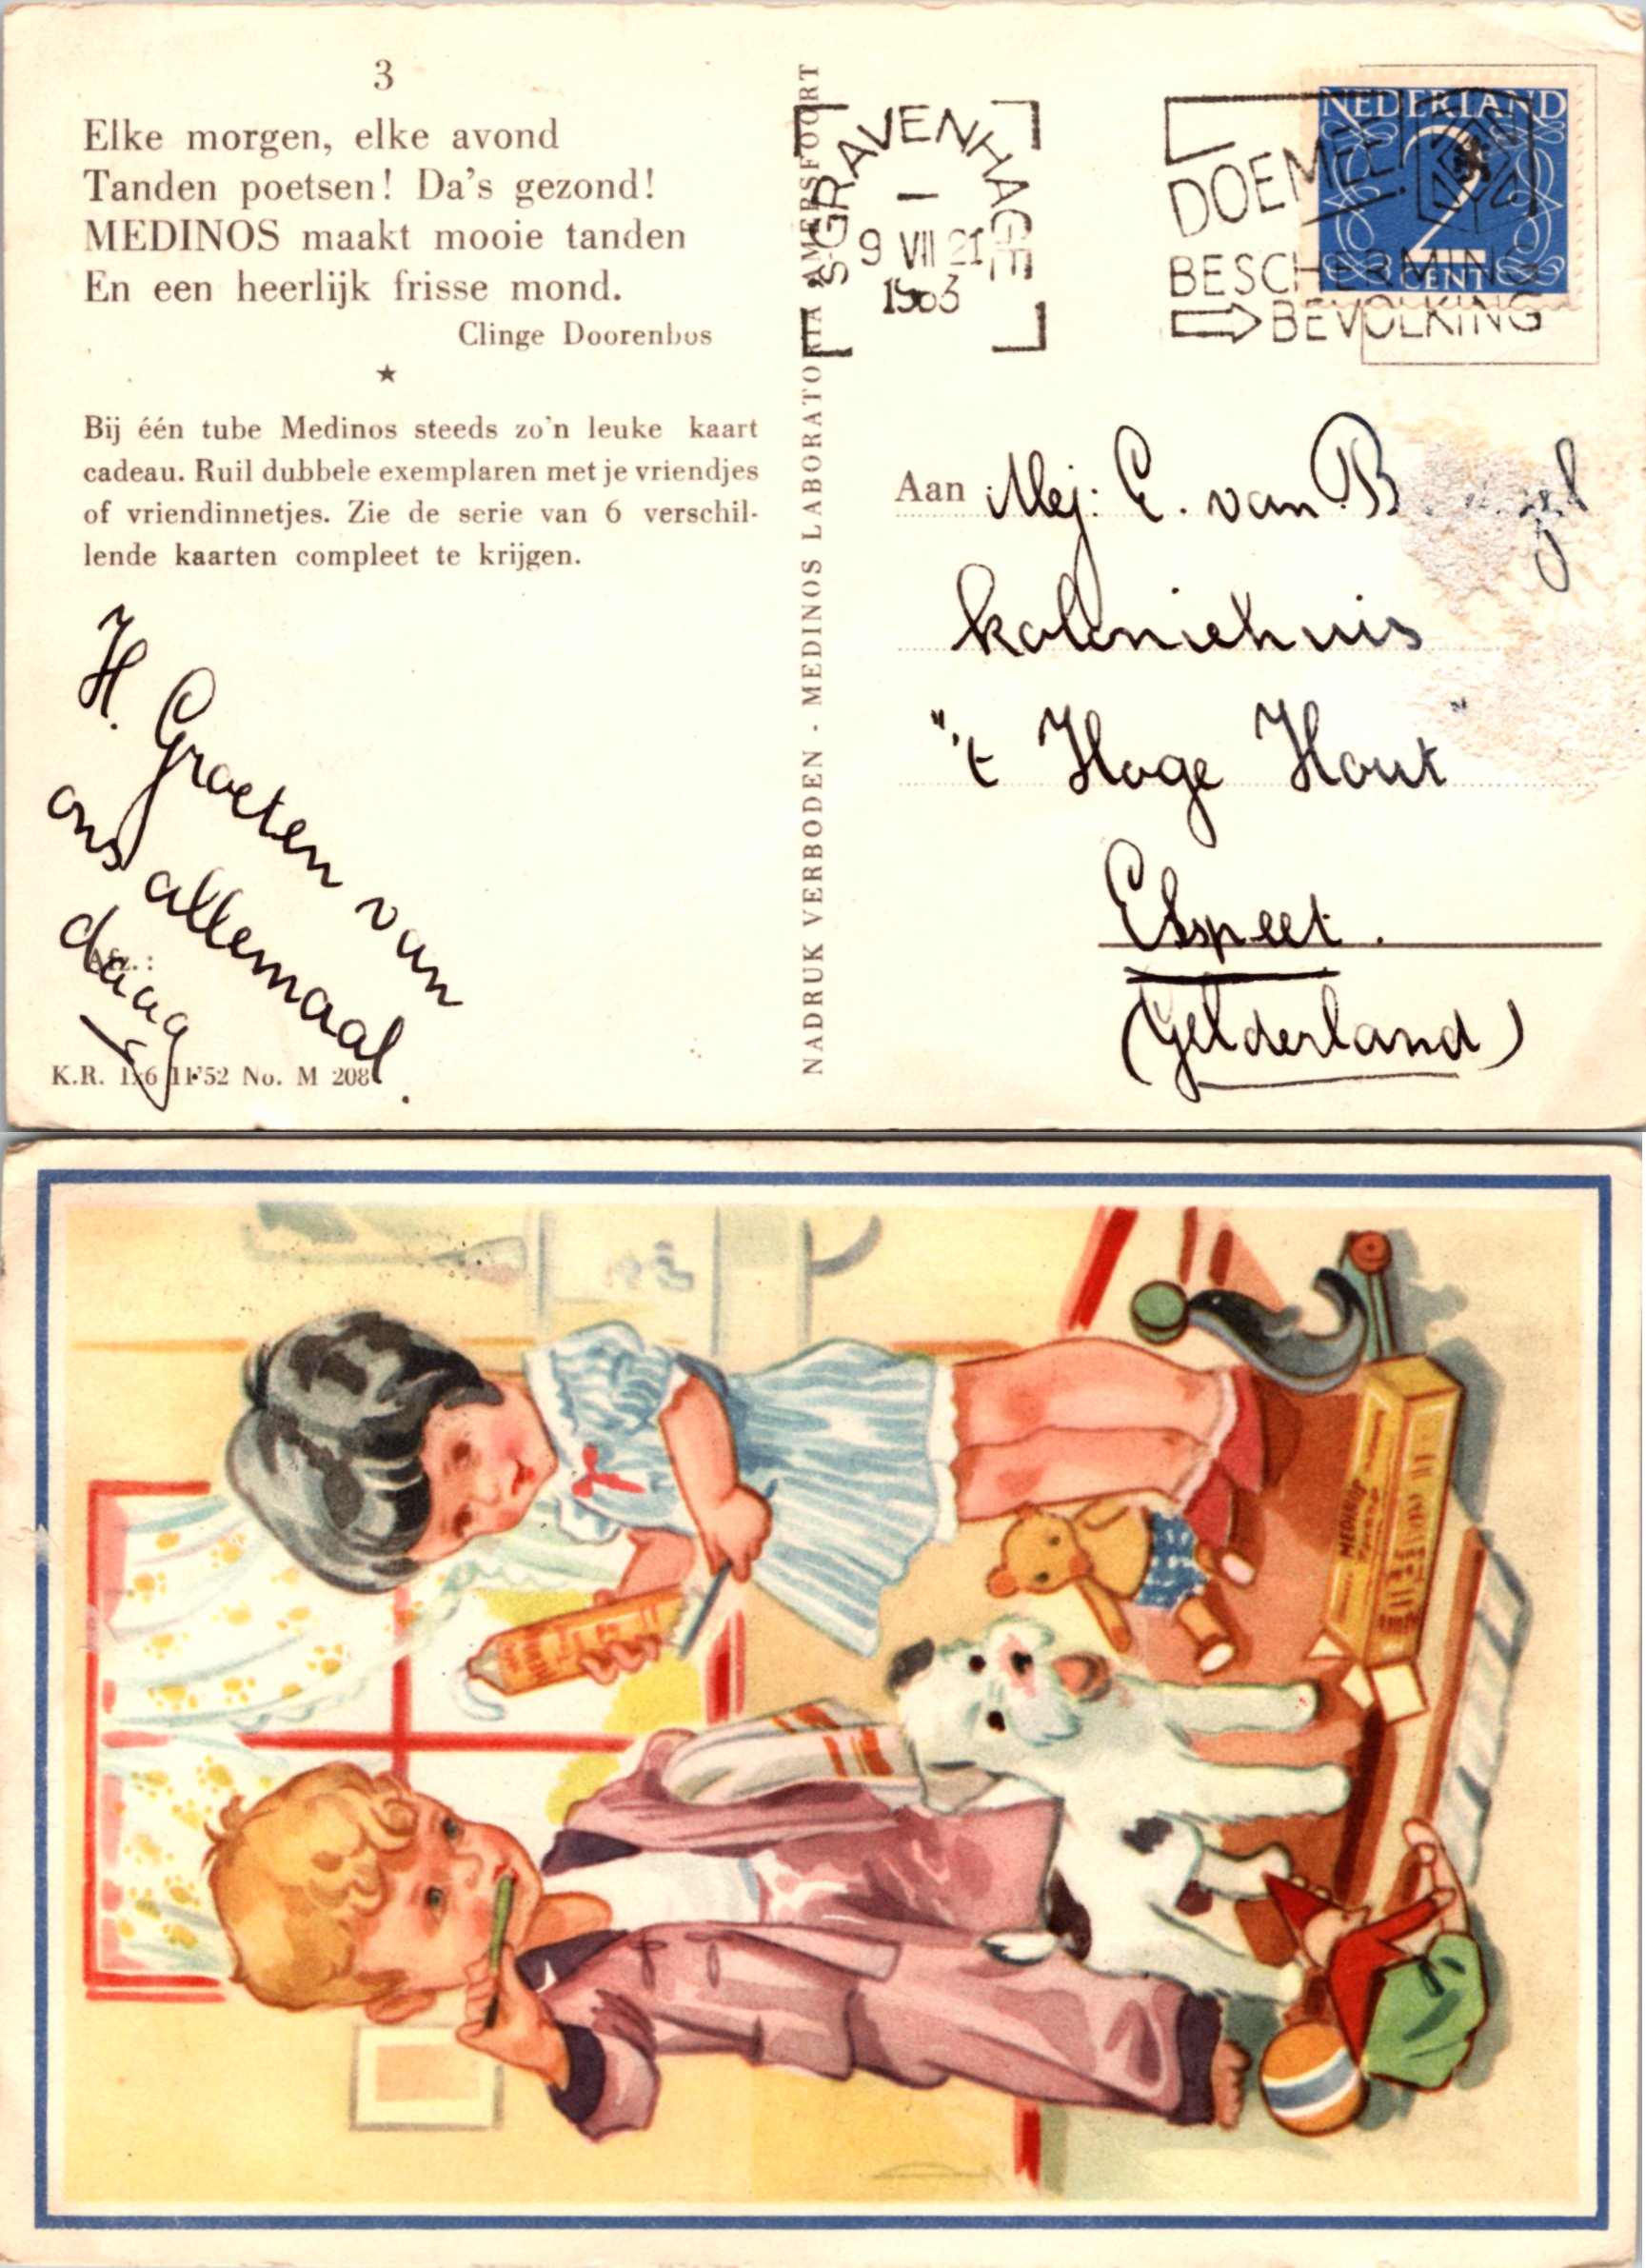 3
Elke morgen, elke avond
Tanden poetsen! Da's gezond!
MEDINOS maakt mooie tanden
En een heerlijk frisse mond.
Clinge Doorenbos
Bij één tube Medinos steeds zo'n leuke kaart
cadeau. Ruil dubbele exemplaren met je vriendjes
of vriendinnetjes. Zie de serie van 6 verschil-
lende kaarten compleet te krijgen.
H. Groeten van
ons allemaal.
daaag
K.R. 11'52 No. M 208
NADRUK VERBODEN - MEDINOS LABORATORIA AMERSFOORT
'S-GRAVENHAGE
9 VII 21
DOE MEE!
BESCHERMING
BEVOLKING
NEDERLAND
2
CENT
Aan Mej: E. van
koloniehuis
"'t Hoge Hout"
Elspeet.
(Gelderland)
MEDINOS